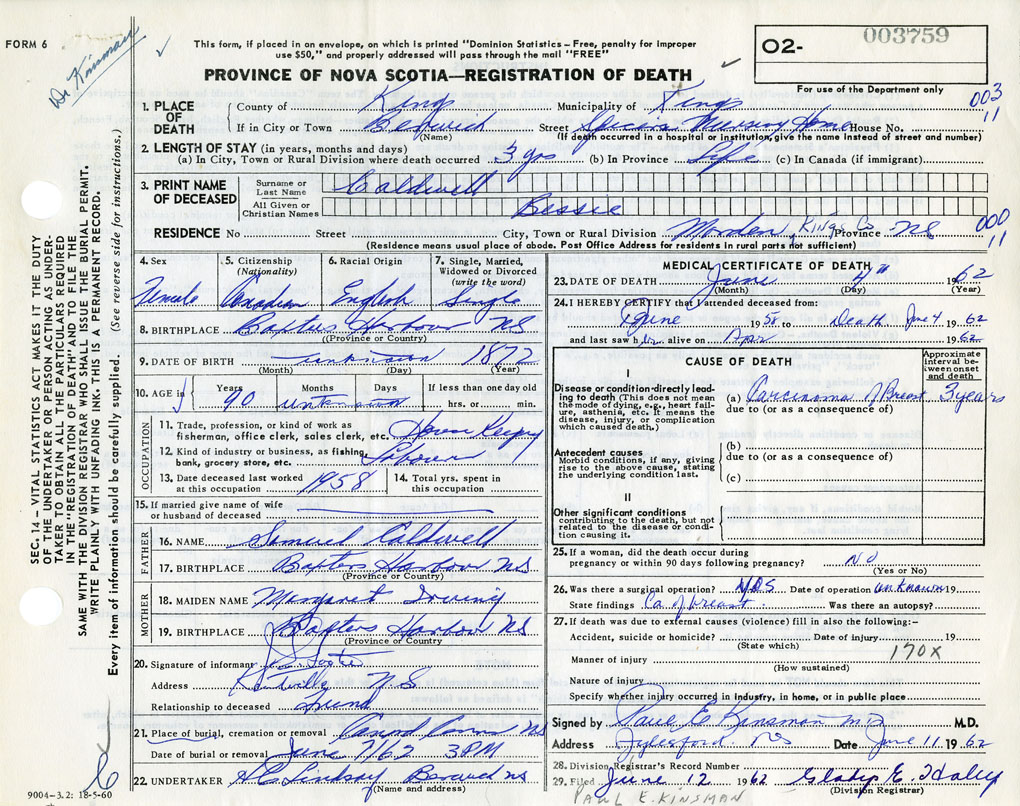 FORM 6
Dr Kinsman
This form, if placed in an envelope, on which is printed "Dominion Statistics – Free, penalty for improper
use $50," and properly addressed will pass through the mail "FREE"
PROVINCE OF NOVA SCOTIA—REGISTRATION OF DEATH
O2-
003759
For use of the Department only
003
11
1. PLACE OF DEATH
County of Kings Municipality of Kings
If in City or Town Berwick Street Nursing Home House No.
(Name) (If death occurred in a hospital or institution, give the name instead of street and number)
2. LENGTH OF STAY (in years, months and days)
(a) In City, Town or Rural Division where death occurred 3 yrs (b) In Province Life (c) In Canada (if immigrant)
3. PRINT NAME OF DECEASED
Surname or Last Name Caldwell
All Given or Christian Names Bessie
RESIDENCE No Street City, Town or Rural Division Morden, Kings Co Province NS
000
11
(Residence means usual place of abode. Post Office Address for residents in rural parts not sufficient)
4. Sex Female
5. Citizenship (Nationality) Canadian
6. Racial Origin English
7. Single, Married, Widowed or Divorced (write the word) Single
8. BIRTHPLACE Baxters Harbour NS
(Province or Country)
9. DATE OF BIRTH unknown 1872
(Month) (Day) (Year)
10. AGE is Years 90 Months unknown Days If less than one day old hrs. or min.
OCCUPATION
11. Trade, profession, or kind of work as
fisherman, office clerk, sales clerk, etc. House Keeping
12. Kind of industry or business, as fishing,
bank, grocery store, etc.
13. Date deceased last worked
at this occupation 1958
14. Total yrs. spent in
this occupation
15. If married give name of wife
or husband of deceased
FATHER
16. NAME Samuel Caldwell
17. BIRTHPLACE Baxters Harbour NS
(Province or Country)
MOTHER
18. MAIDEN NAME Margaret Irving
19. BIRTHPLACE Baxters Harbour NS
(Province or Country)
20. Signature of informant
Address Kentville N.S.
Relationship to deceased Friend
21. Place of burial, cremation or removal NS
Date of burial or removal June 7/62 3 PM
22. UNDERTAKER H C Lindsay Berwick NS
(Name and address)
MEDICAL CERTIFICATE OF DEATH
23. DATE OF DEATH June 4th 1962
(Month) (Day) (Year)
24. I HEREBY CERTIFY that I attended deceased from:
June 19 to Death June 4 1962
and last saw her alive on Apr 1962
CAUSE OF DEATH
Approximate interval between onset and death
I
Disease or condition directly leading to death (This does not mean the mode of dying, e.g., heart failure, asthenia, etc. It means the disease, injury, or complication which caused death.)
(a) Carcinoma of Breast 3 years
due to (or as a consequence of)
Antecedent causes
Morbid conditions, if any, giving rise to the above cause, stating the underlying condition last.
(b)
due to (or as a consequence of)
(c)
II
Other significant conditions
contributing to the death, but not related to the disease or condition causing it.
25. If a woman, did the death occur during
pregnancy or within 90 days following pregnancy? NO
(Yes or No)
26. Was there a surgical operation? Yes Date of operation unknown 19
State findings Ca of breast. Was there an autopsy?
27. If death was due to external causes (violence) fill in also the following:–
Accident, suicide or homicide? Date of injury 19
(State which)
170X
Manner of injury
(How sustained)
Nature of injury
Specify whether injury occurred in industry, in home, or in public place
Signed by Paul E Kinsman MD M.D.
Address Aylesford. NS Date June 11 1962
28. Division Registrar's Record Number
29. Filed June 12 1962 Gladys E. Haley
(Division Registrar)
PAUL E. KINSMAN
9004–3.2: 18-5-60
SEC. 14 – VITAL STATISTICS ACT MAKES IT THE DUTY
OF THE UNDERTAKER OR PERSON ACTING AS UNDER-
TAKER TO OBTAIN ALL THE PARTICULARS REQUIRED
IN THE "REGISTRATION OF DEATH" AND TO FILE THE
SAME WITH THE DIVISION REGISTRAR WHO SHALL ISSUE THE BURIAL PERMIT.
WRITE PLAINLY WITH UNFADING INK. THIS IS A PERMANENT RECORD.
Every item of information should be carefully supplied. (See reverse side for instructions.)